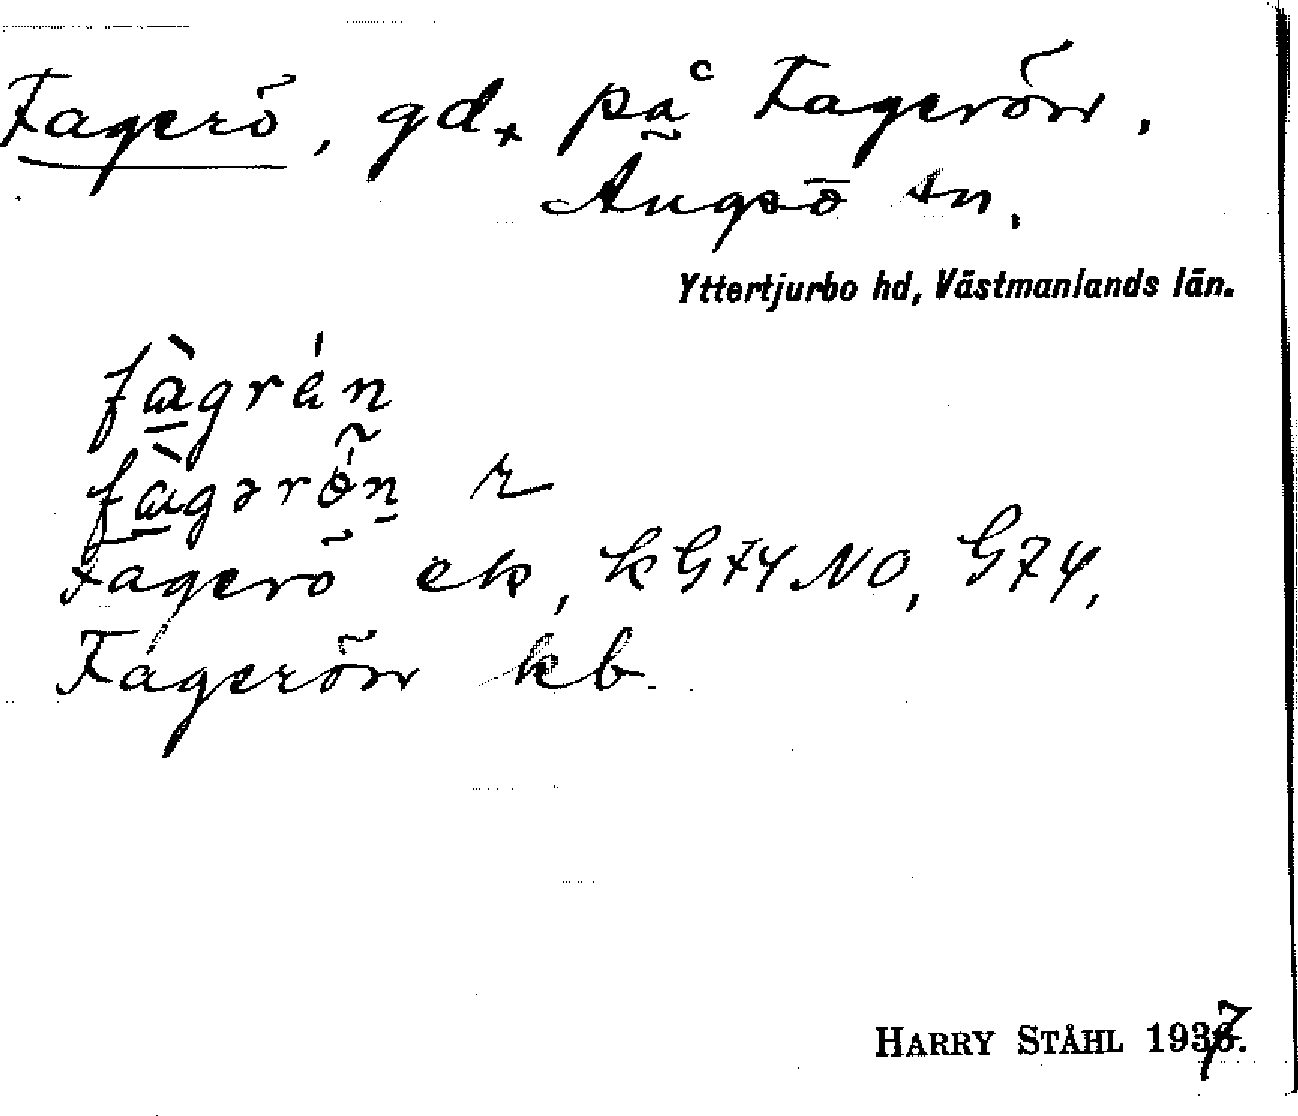 Fagerö, gd. på Fagerön,
Ängsö sn.
Yttertjurbo hd, Västmanlands län.
fàgrén
fàgərö́n r
Fagerö ek, kG74NO, G74,
Fagerön kb.
HARRY STÅHL 1937.